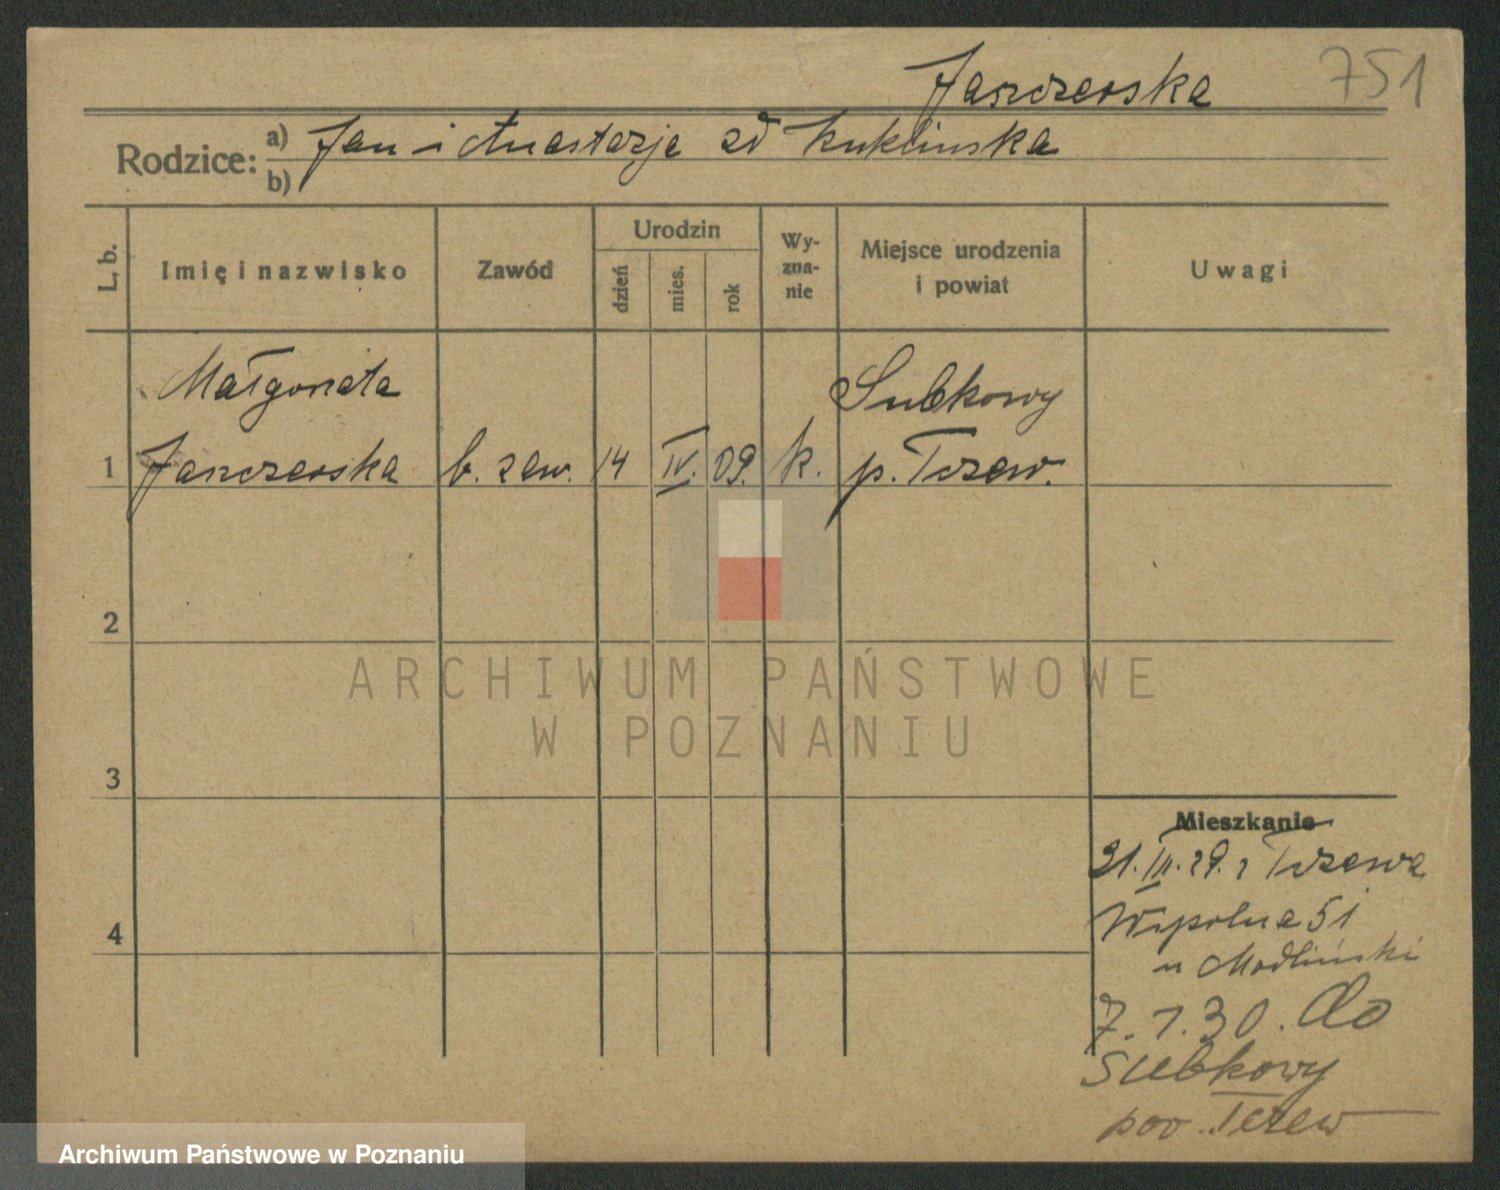 Jaszczerska 751
Rodzice: a) Jan i Anastazja zd Kuklinska
b)
L. b. Imię i nazwisko Zawód Urodzin dzień mies. rok Wyznanie Miejsce urodzenia i powiat Uwagi
Małgorzata Subkowy
1 Jaszczerska b. zaw. 14 IV. 09. k. p. Tczew.
2
ARCHIWUM PAŃSTWOWE
W POZNANIU
3
Mieszkanie
31. III. 29. z Tczewa
4 Wspolna 51
u Modliński
7.1.30. do
Subkowy
pow. Tczew
Archiwum Państwowe w Poznaniu